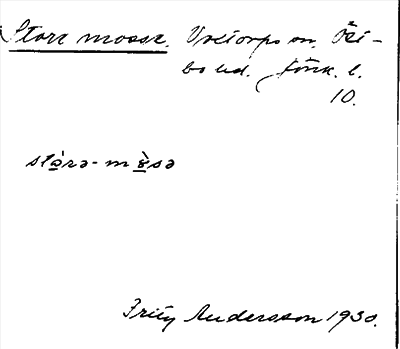 Store mosse. Vretorps sn. Öst-
bo hd. Jönk. l.
10.
stɑ̀rə-mɞ̀sə
Fritz Andersson 1930.